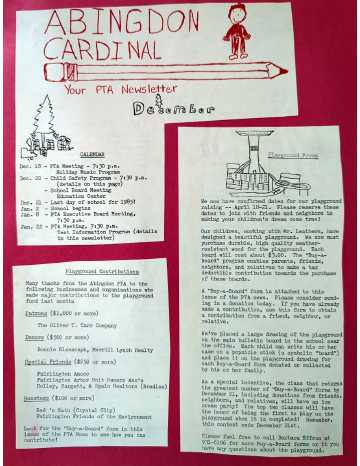 ABINGDON
CARDINAL
Your PTA Newsletter
December
CALENDAR
Dec. 18 - PTA Meeting - 7:30 p.m.
Holiday Music Program
Dec. 20 - Child Safety Program - 7:30 p.m.
(details on this page)
- School Board Meeting
Education Center
Dec. 21 - Last day of school for 1983!
Jan. 2 - School begins
Jan. 8 - PTA Executive Board Meeting,
7:30 p.m.
Jan. 22 - PTA Meeting, 7:30 p.m.
Test Information Program (details
in this newsletter)
Playground Contributions
Many thanks from the Abingdon PTA to the
following businesses and organizations who
made major contributions to the playground
fund last month:
Patrons ($1,000 or more)
The Oliver T. Carr Company
Donors ($500 or more)
Bonnie Slusser, Merrill Lynch Realty
Special Friends ($250 or more)
Fairlington Amoco
Fairlington Arbor Unit Owners Ass'n
Holley, Hargett, & Spain Realtors
Boosters ($100 or more)
Red 'n Bait (Crystal City)
Fairlington Friends of the Environment
Look for the "Buy-a-Board" form in this
issue of the PTA News to see how you can
contribute!
Playground Power
We now have confirmed dates for our playground
raising -- April 18-21. Please reserve these
dates to join with friends and neighbors in
making your children's dream come true!
Our children, working with Mr. Leathers, have
designed a beautiful playground. We now must
purchase durable, high quality weather-
resistant wood for the playground. Each
board will cost about $3.00. The "Buy-a-
Board" program enables parents, friends,
neighbors, and relatives to make a tax
deductible contribution towards the purchase
of these boards.
A "Buy-a-Board" form is attached to this
issue of the PTA news. Please consider send-
ing in a donation today. If you have already
made a contribution, use this form to obtain
a contribution from a friend, neighbor, or
relative.
We've placed a large drawing of the playground
on the main bulletin board in the school near
the office. Each child can write his or her
name on a popsicle stick (a symbolic "board")
and place it on the playground drawing for
each Buy-a-Board form donated or collected
by his or her family.
As a special incentive, the class that returns
the greatest number of "Buy-a-Board" forms by
December 21, including donations from friends,
neighbors, and relatives, will have an ice
cream party! The top two classes will have
the honor of being the first to play on the
playground when it is completed! Remember,
this contest ends December 21st.
Please feel free to call Barbara Effron at
if you
have any questions about the playground.